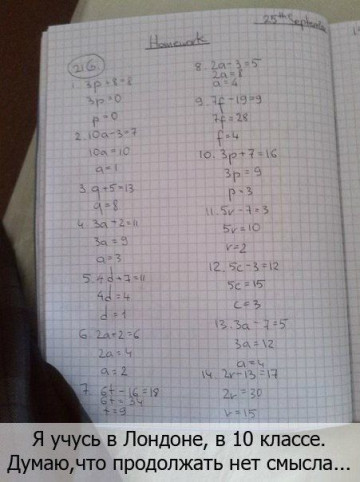 25th Septembe
Homework
21G
1. 3p=8-8
3p=0
p=0
2. 10a-3=7
10a=10
a=1
3. q+5=13
q=8
4. 3a+2=11
3a=9
a=3
5. 4d+7=11
4d=4
d=1
6. 2a+2=6
2a=4
a=2
7. 6t-16=18
6t=34
t=9
8. 2a-3=5
2a=8
a=4
9. 7f-19=9
7f=28
f=4
10. 3p+7=16
3p=9
p=3
11. 5r-7=3
5r=10
r=2
12. 5c-3=12
5c=15
c=3
13. 3a-7=5
3a=12
a=4
14. 2r-13=17
2r=30
r=15
Я учусь в Лондоне, в 10 классе.
Думаю,что продолжать нет смысла...